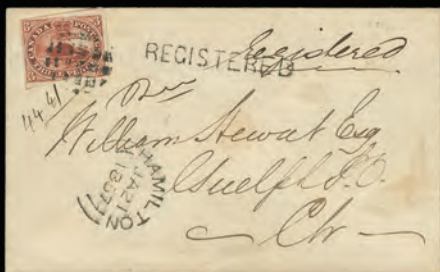 CANADA POSTAGE
REGISTERED
Registered
4461
William Stewart Esq
Guelph P.O.
C.W.
HAMILTON
JA 21
1857